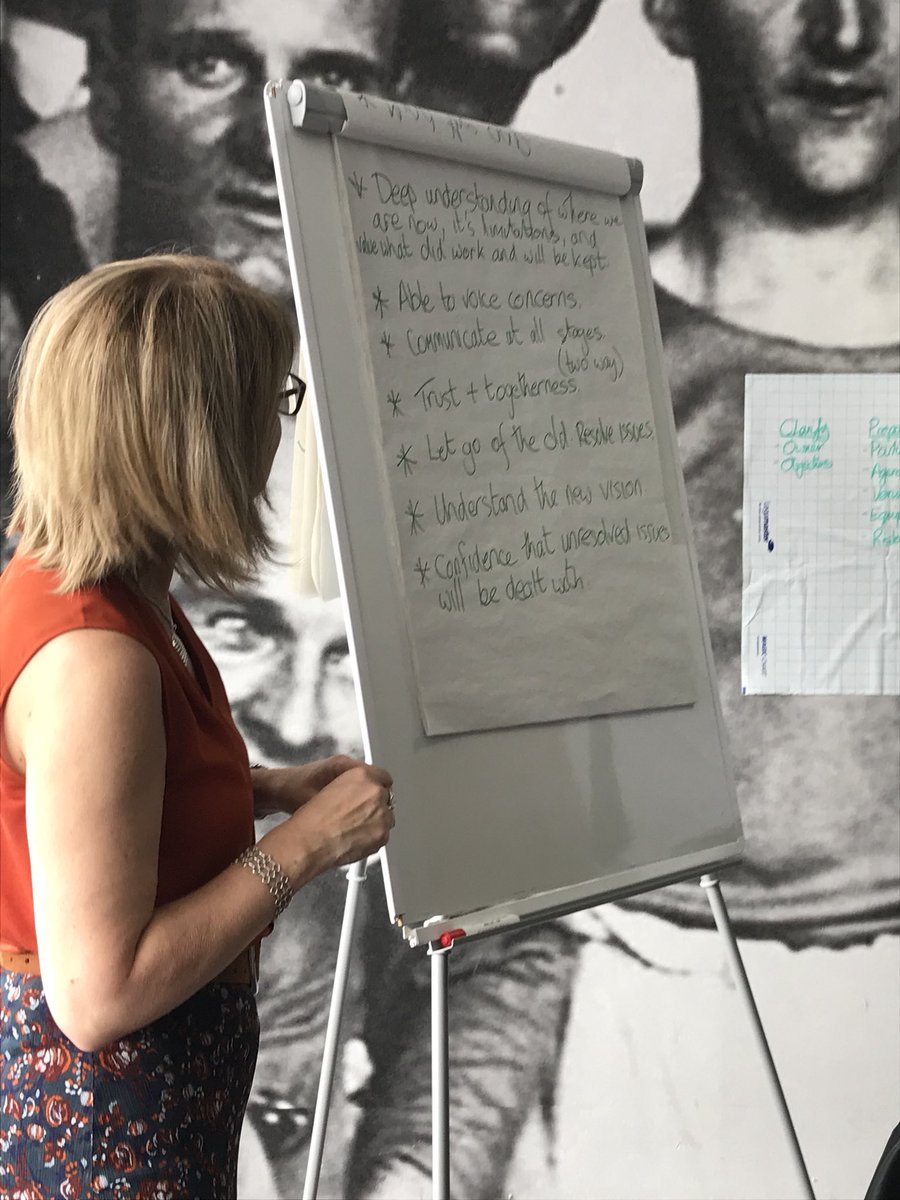 * Deep understanding of where we
are now, it's limitations, and
value what did work and will be kept.
* Able to voice concerns.
* Communicate at all stages.
(two way)
* Trust + togetherness.
* Let go of the old. Resolve issues.
* Understand the new vision
* Confidence that unresolved issues
will be dealt with
Clarify
- Owner
- Objectives
legamaster